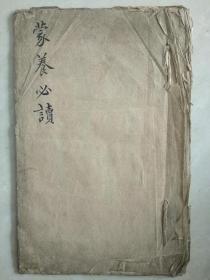 蒙養必讀